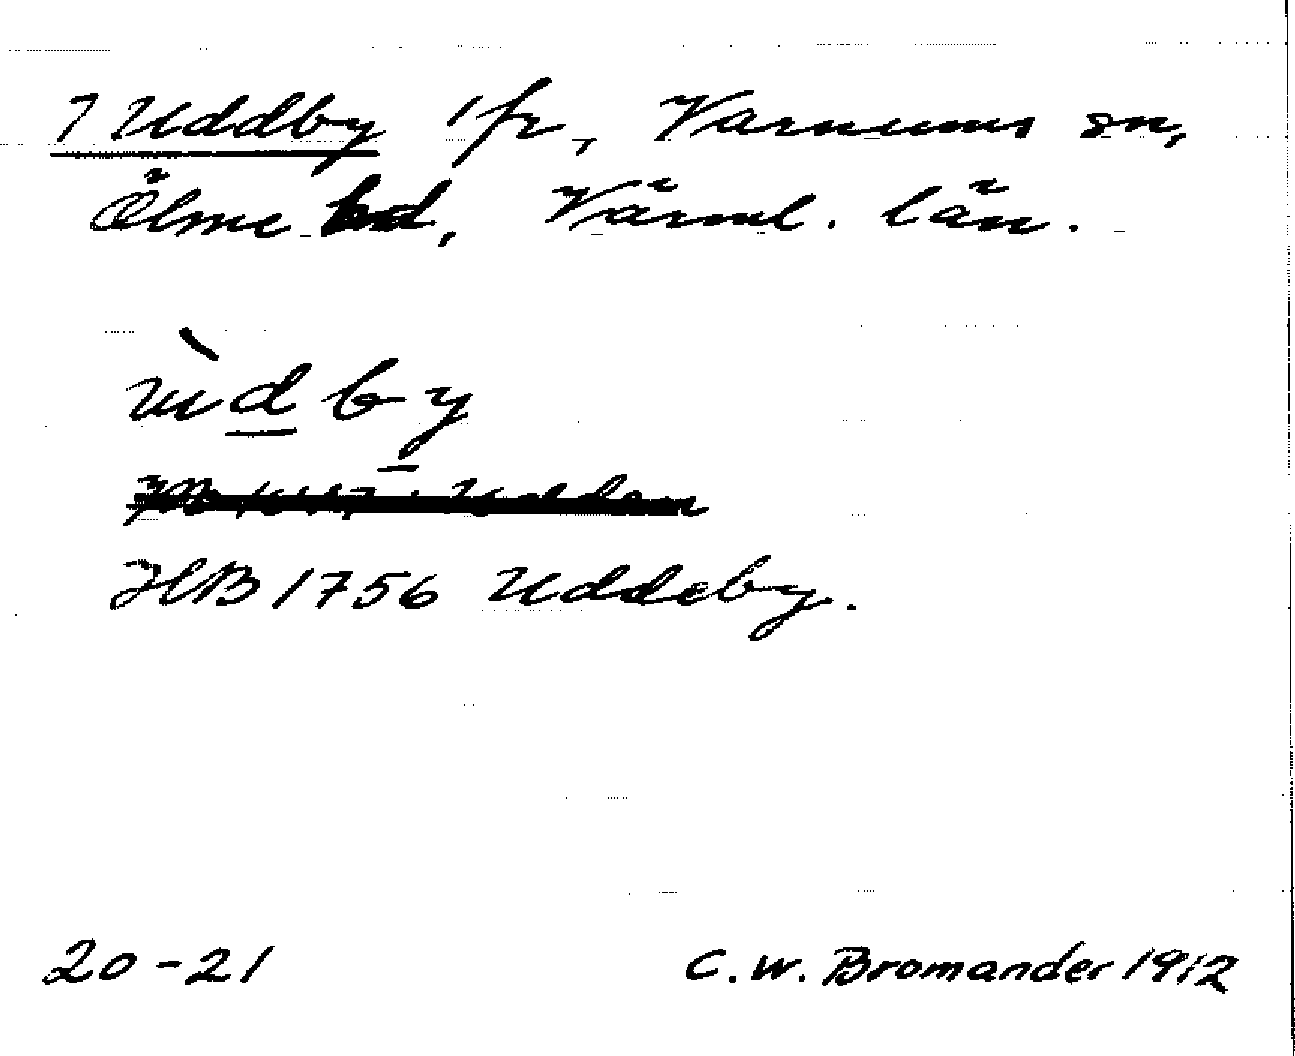 7 Uddby 1 fr, Varnums sn,
Ölme hd, Värml. län.
ùdby
HB 1756 Uddeby.
20-21
C. W. Bromander 1912